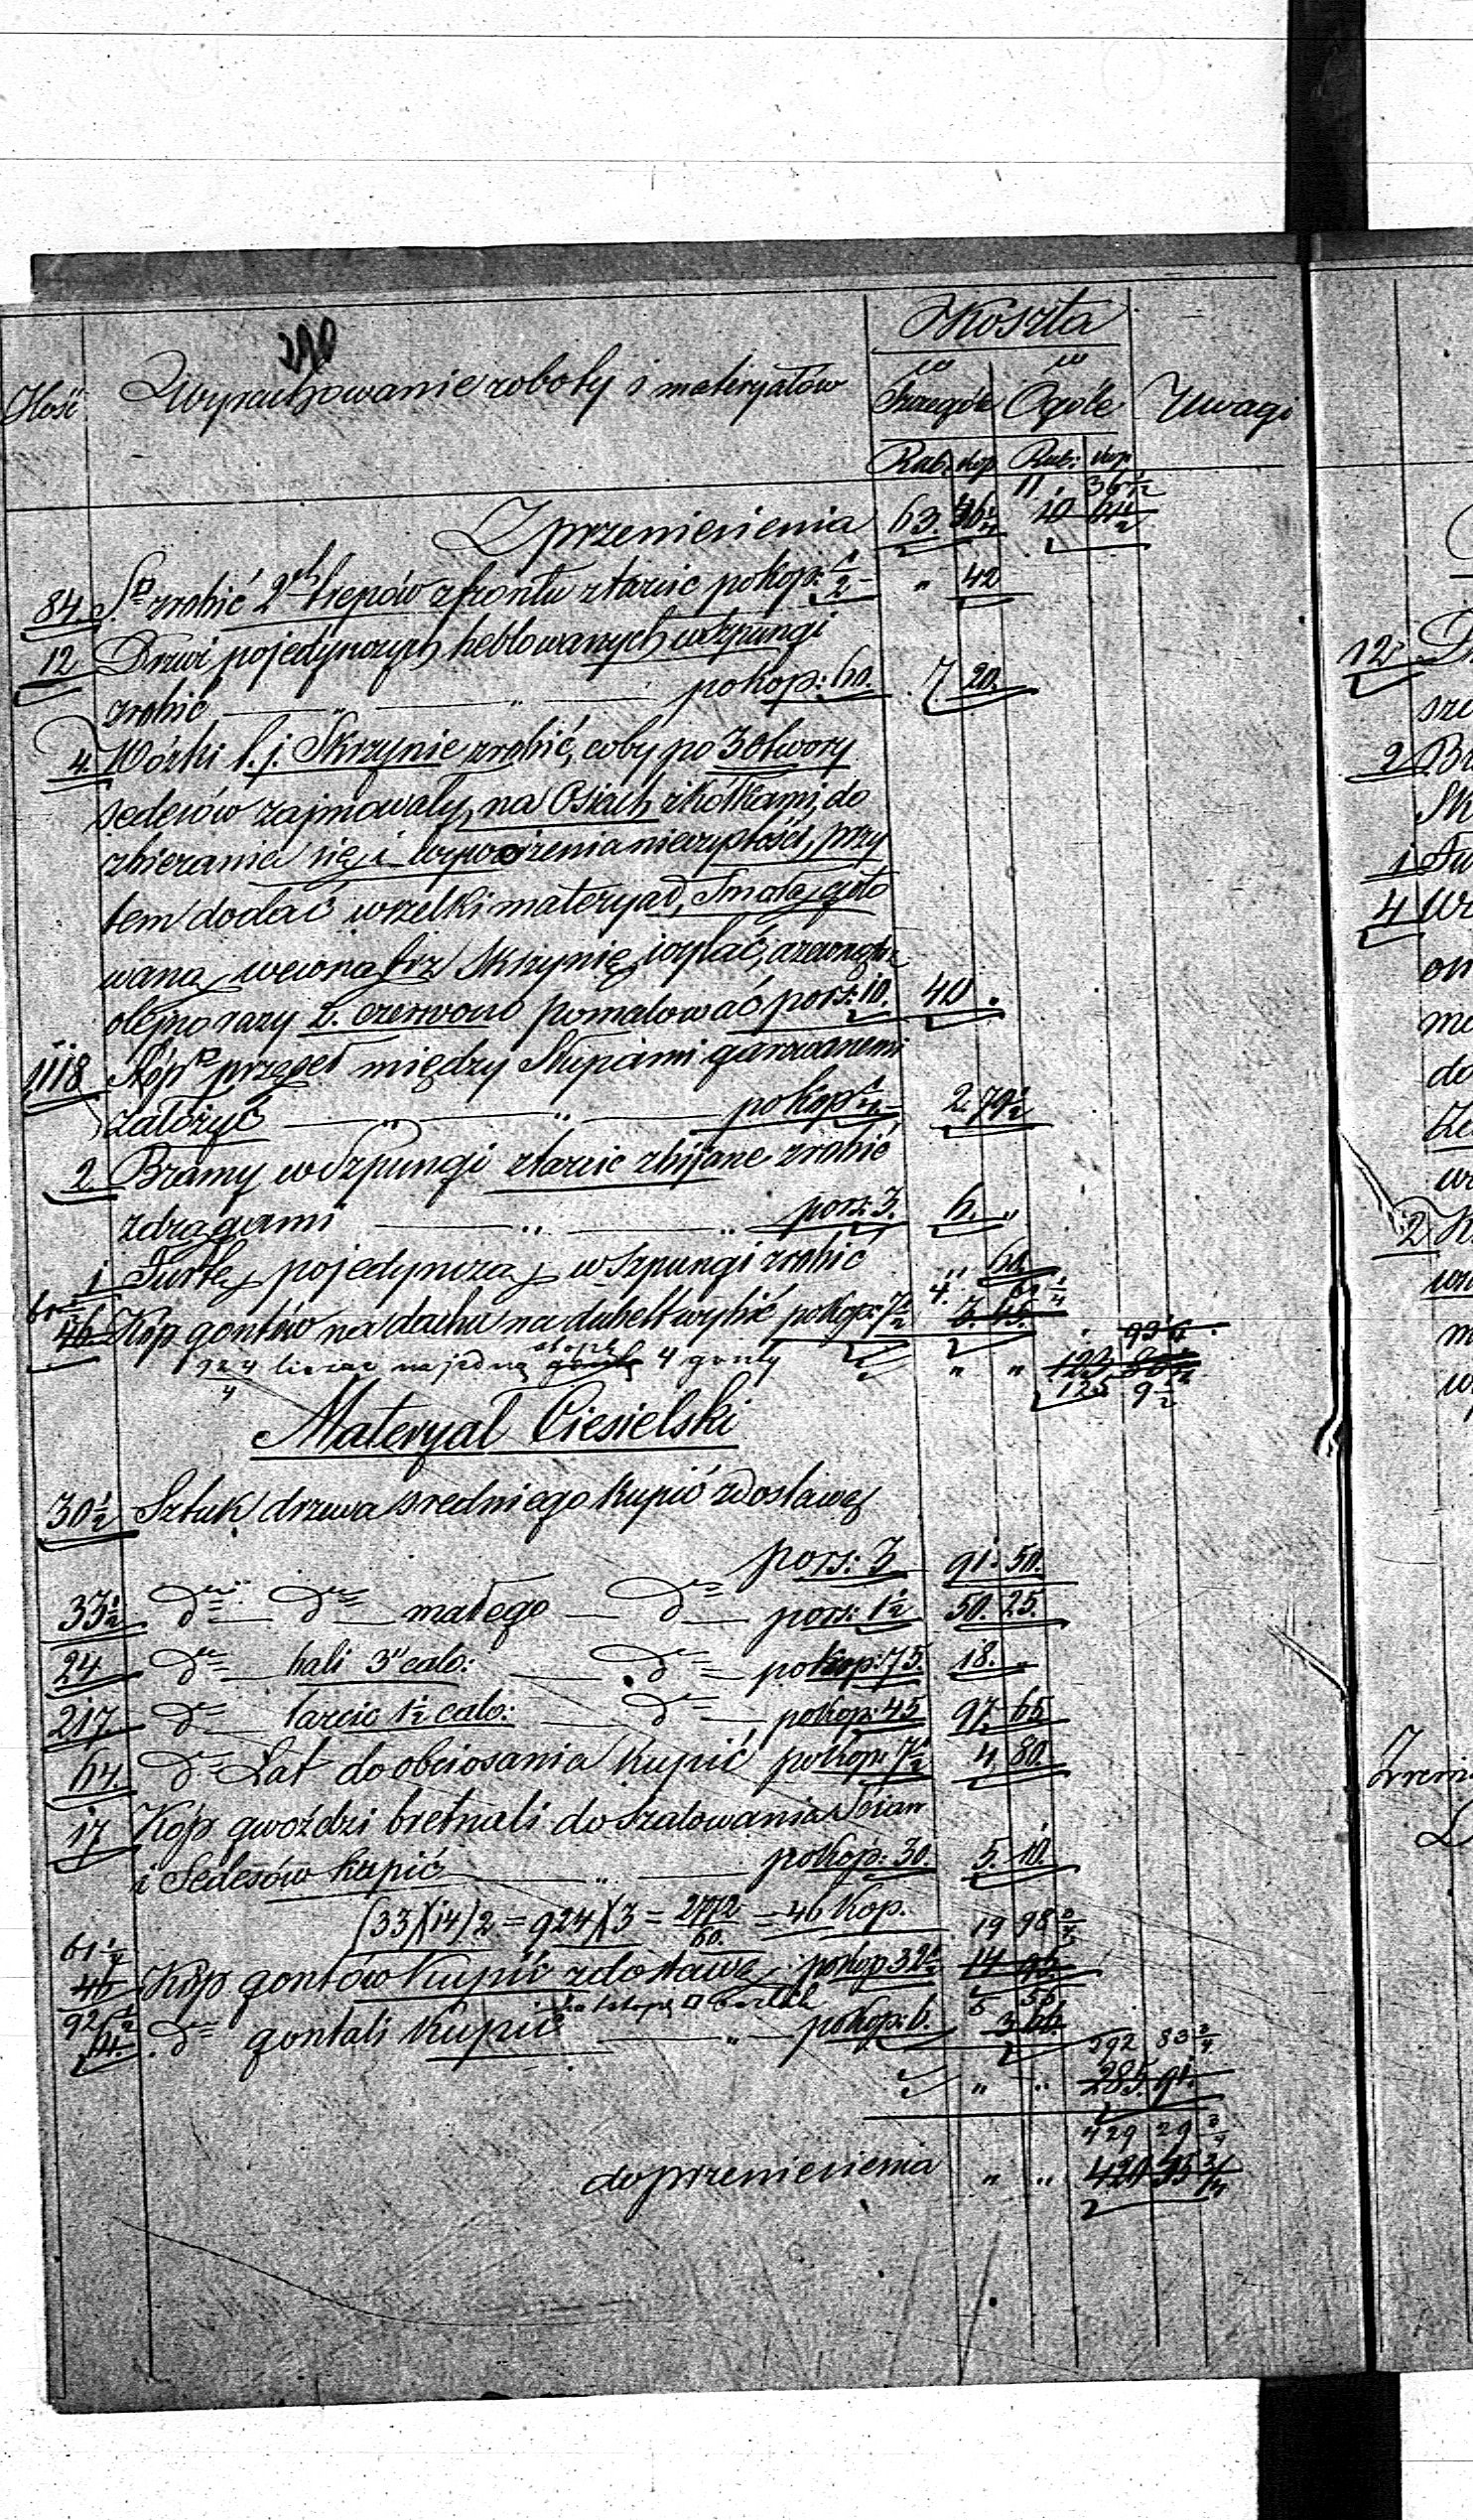 Koszta
Ilość Wyrachowanie roboty i materyałów w Szczególe w Ogóle Uwagi
Rub: kop Rub: kop
11 36 1/2
Z przeniesienia 63. 10
84. zrobić 2ch trepów z frontu z tarcic po kop: 1/2 " 42
12 Drzwi pojedynczych heblowanych w szpungi
zrobić " " po kop: 60. 7 20.
4. Wózki t. j. Skrzynie zrobić, coby po 3 otwory
sedesów zajmowały, na Osiach z kółkami, do
zbierania się i wywożenia nieczystości, przy
tem dodać wszelki materyał, Smołą goto
waną wewnątrz Skrzynię wylać, a zewnątrz
olejno razy 2. czerwono pomalować po rs: 10. 40 .
1118 Stóp przęseł między Słupami
założyć " " po kop 1/4 2 79 1/2
2 Bramy w Szpungi z tarcic zbijane zrobić
z drągami " " po rs: 3. 6. "
1 Furtkę pojedynczą w szpungi zrobić " 60
61 1/2 4. 61 1/4
46 Kóp gontów na dachu na dubelt wybić po kop: 7 1/2 3. 45.
924/4 licząc na jedną stopę 4 gonty " " 123
125 9 1/2
Materyał Ciesielski
30 1/2 Sztuk drzewa średniego kupić z dostawą
po rs: 3 91. 50.
33 1/2 dto dto małego dto po rs: 1 1/2 50. 25.
24 dto bali 3" calo: dto po kop: 75. 18. "
217 dto tarcic 1 1/2 calo: dto po kop: 45 97. 65
64. dto Łat do obciosania kupić po kop: 7 1/2 4 80.
17 Kóp gwoździ bretnali do szalowania Ścian
i Sedesów kupić " po kop: 30. 5. 10
(33)(14)2 = 924)(3 = 2772/60. = 46 Kop.
61 1/2 19 98 3/4
46 Kóp gontów kupić z dostawą po kop 32 1/2 14 95
92 1/2 na stopę 5 55
dto gontali kupić " po kop: 6. 3 66
292 83 3/4
" " 285. 91.
429 29 3/4
do przeniesienia " "